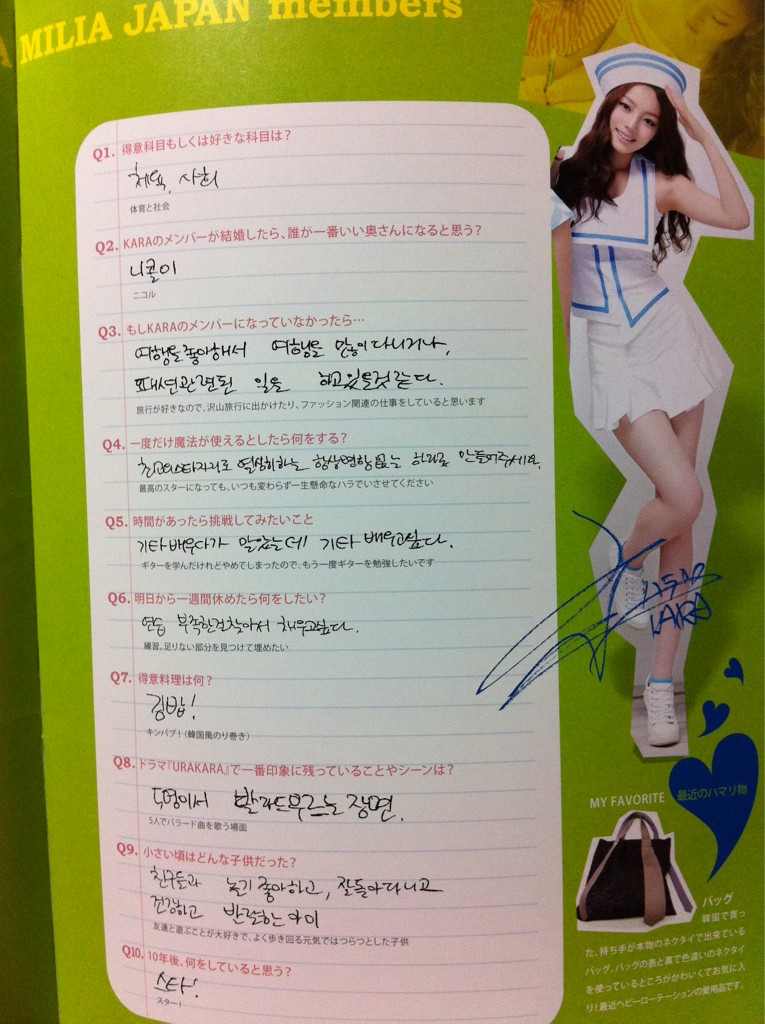 A MILIA JAPAN members
Q1. 得意科目もしくは好きな科目は？
체육, 사회
体育と社会
Q2. KARAのメンバーが結婚したら、誰が一番いい奥さんになると思う？
니콜이
ニコル
Q3. もしKARAのメンバーになっていなかったら…
여행을 좋아해서 여행을 많이 다니거나,
패션관련된 일을 하고있을것같다.
旅行が好きなので、沢山旅行に出かけたり、ファッション関連の仕事をしていると思います
Q4. 一度だけ魔法が使えるとしたら何をする？
최고의스타자리로 열심히하는 항상변함없는 하라로 만들어주세요.
最高のスターになっても、いつも変わらず一生懸命なハラでいさせてください
Q5. 時間があったら挑戦してみたいこと
기타배우다가 말았는데 기타배우고싶다.
ギターを学んだけれどやめてしまったので、もう一度ギターを勉強したいです
Q6. 明日から一週間休めたら何をしたい？
연습 부족한걸찾아서 채우고싶다.
練習。足りない部分を見つけて埋めたい
Q7. 得意料理は何？
김밥!
キンパプ！(韓国風のり巻き)
Q8. ドラマ『URAKARA』で一番印象に残っていることやシーンは？
다섯명이서 발라드부르는장면.
5人でバラード曲を歌う場面
Q9. 小さい頃はどんな子供だった？
친구들과 놀기좋아하고, 잘돌아다니고
건강하고 발랄한아이
友達と遊ぶことが大好きで、よく歩き回る元気ではつらつとした子供
Q10. 10年後、何をしていると思う？
스타!
スター！
KARA
MY FAVORITE 最近のハマリ物
バッグ
韓国で買っ
た、持ち手が本物のネクタイで出来ている
バッグ。バッグの表と裏で色違いのネクタイ
を使っているところがかわいくてお気に入
り！最近ヘビーローテーションの愛用品です。